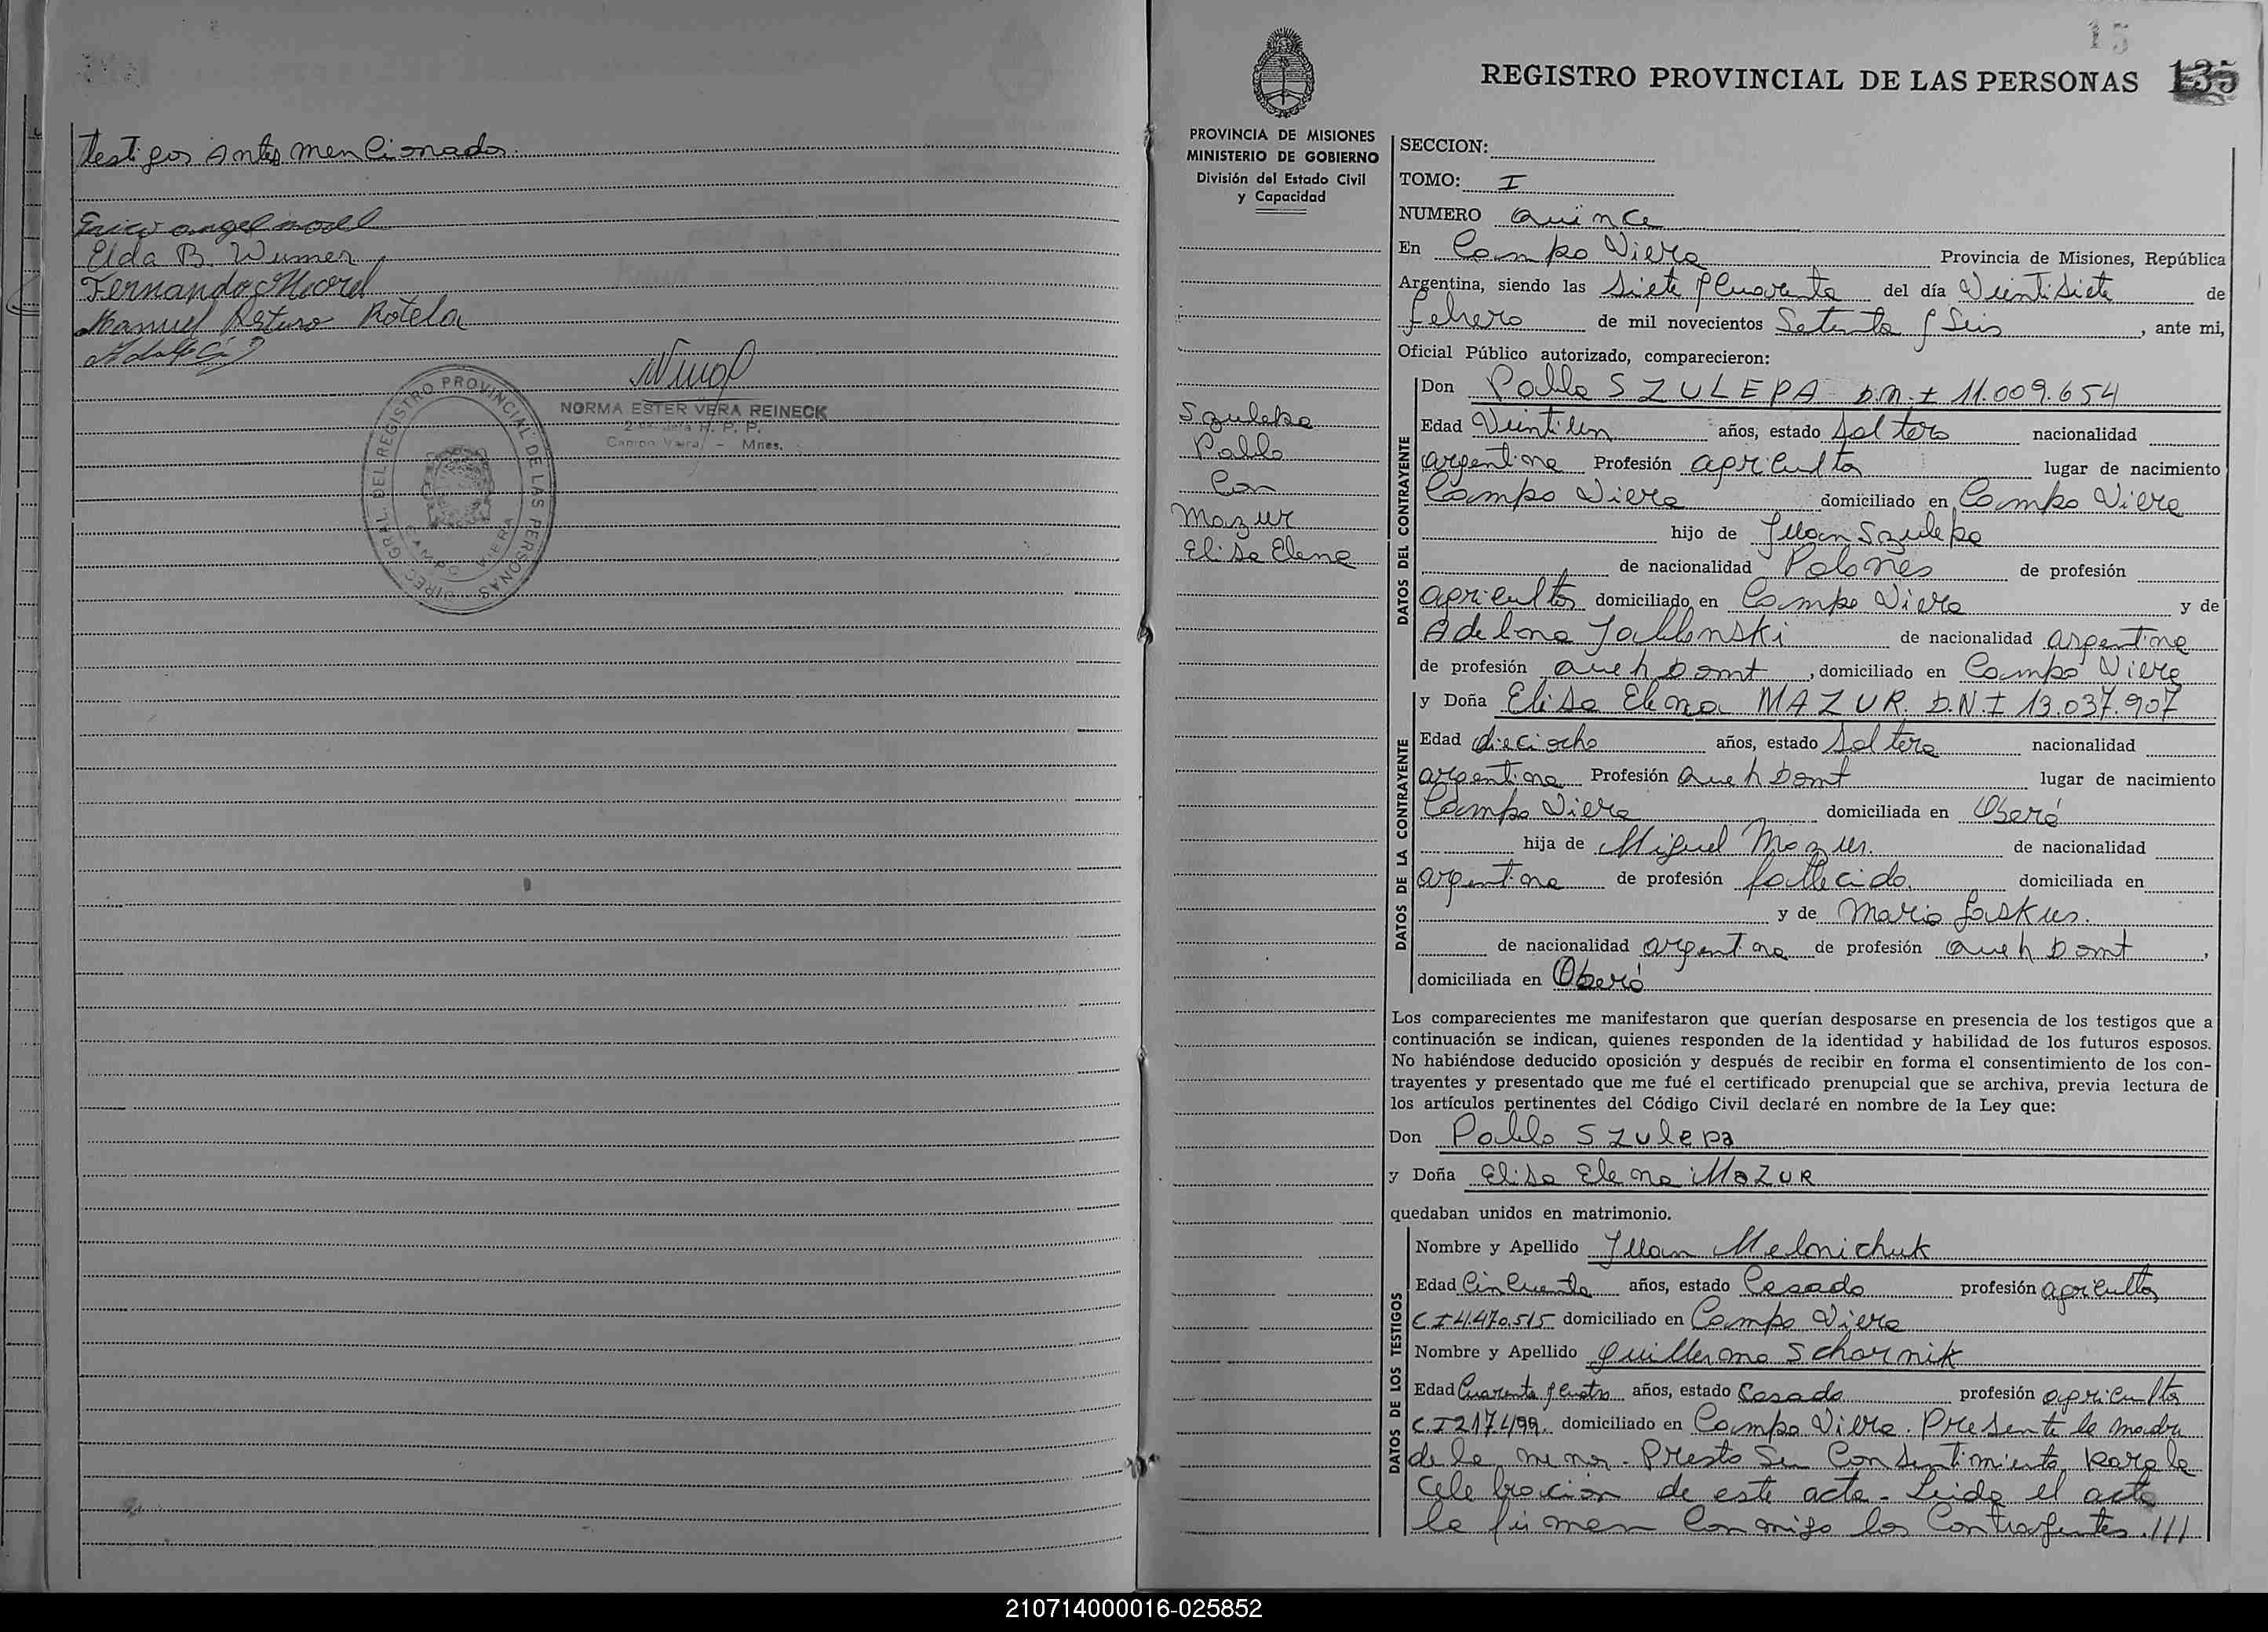 testigos antes mencionados.
Erico angel morel
Elda B. Wumer
Fernando Morel
Manuel Arturo Rotela
NORMA ESTER VERA REINECK
R. P. P.
Campo Viera - Mnes.
DIREC. GRAL. DEL REGISTRO PROVINCIAL DE LAS PERSONAS
CAMPO VIERA
15
REGISTRO PROVINCIAL DE LAS PERSONAS 135
PROVINCIA DE MISIONES
MINISTERIO DE GOBIERNO
División del Estado Civil
y Capacidad
Szulepa
Pablo
Con
Mazur
Elisa Elena
SECCION:
TOMO: I
NUMERO quince
En Campo Viera Provincia de Misiones, República
Argentina, siendo las Siete y Cuarenta del día Veintisiete de
febrero de mil novecientos Setenta y Seis, ante mi,
Oficial Público autorizado, comparecieron:
DATOS DEL CONTRAYENTE
Don Pablo SZULEPA D.N.I 11.009.654
Edad Veintiun años, estado Soltero nacionalidad
argentina Profesión agricultor lugar de nacimiento
Campo Viera domiciliado en Campo Viera
hijo de Juan Szulepa
de nacionalidad Polones de profesión
agricultor domiciliado en Campo Viera y de
Adelina Jablonski de nacionalidad argentina
de profesión queh Domt, domiciliado en Campo Viera
DATOS DE LA CONTRAYENTE
y Doña Elisa Elena MAZUR. D.N.I 13.037.907
Edad dieciocho años, estado Soltera nacionalidad
argentina Profesión queh Domt lugar de nacimiento
Campo Viera domiciliada en Oberá
hija de Miguel Mazur. de nacionalidad
argentina de profesión fallecido. domiciliada en
y de Maria Laskur.
de nacionalidad argentina de profesión queh Domt,
domiciliada en Oberá
Los comparecientes me manifestaron que querían desposarse en presencia de los testigos que a
continuación se indican, quienes responden de la identidad y habilidad de los futuros esposos.
No habiéndose deducido oposición y después de recibir en forma el consentimiento de los con-
trayentes y presentado que me fué el certificado prenupcial que se archiva, previa lectura de
los artículos pertinentes del Código Civil declaré en nombre de la Ley que:
Don Pablo Szulepa
y Doña Elisa Elena MAZUR
quedaban unidos en matrimonio.
DATOS DE LOS TESTIGOS
Nombre y Apellido Juan Melnichuk
Edad Cincuenta años, estado Casado profesión agricultor
C I 4.470.515 domiciliado en Campo Viera
Nombre y Apellido Guillermo Schornik
Edad Cuarenta y Cuatro años, estado Casado profesión agricultor
C.I 217.499. domiciliado en Campo Viera. Presente la madre
de la menor. Presto Su Consentimiento para la
Celebracion de este acta. Leida el acta
la firman Conmigo los Contrayentes.///
210714000016-025852